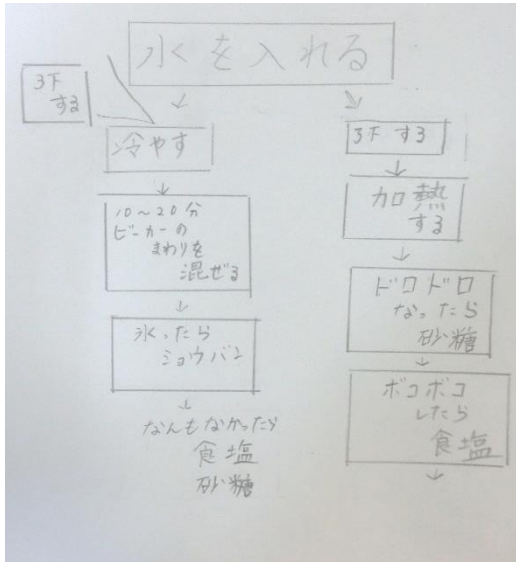 水を入れる
ろ下
する
冷やす
10〜20分
ビーカーの
まわりを
混ぜる
氷ったら
ミョウバン
なんもなかったら
食塩
砂糖
ろ下する
加熱
する
ドロドロ
なったら
砂糖
ボコボコ
したら
食塩